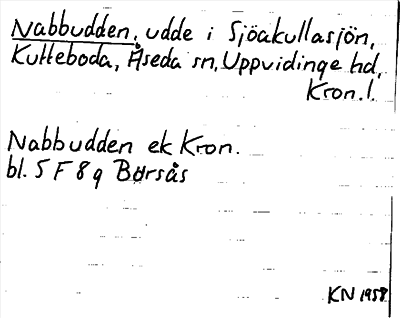 Nabbudden, udde i Sjöakullasjön,
Kutteboda, Åseda sn, Uppvidinge hd,
Kron. l.
Nabbudden ek Kron.
bl. 5 F 8 q Barsås
KN 1958